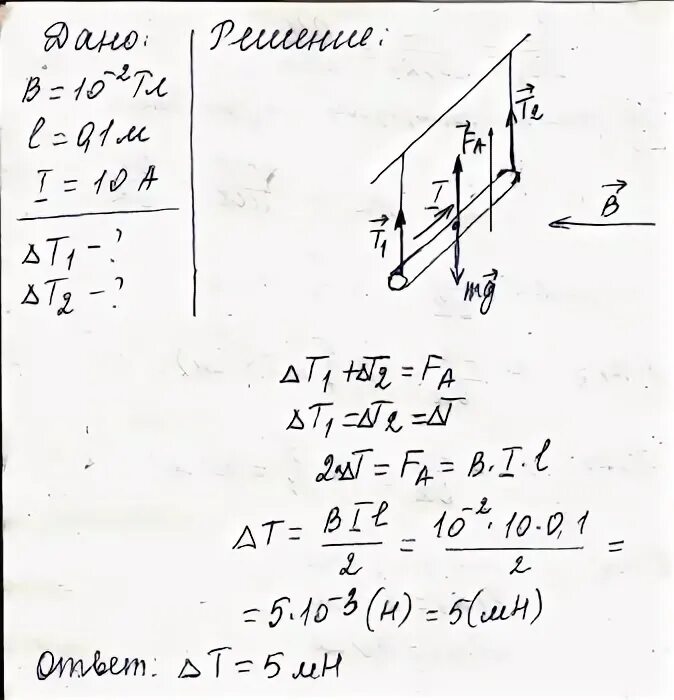 Дано:
B = 10⁻² Тл
l = 0,1 м
I = 10 А
ΔT₁ - ?
ΔT₂ - ?
Решение:
T⃗₂
F⃗A
I
T⃗₁
B⃗
mg⃗
ΔT₁ + ΔT₂ = FA
ΔT₁ = ΔT₂ = ΔT
2ΔT = FA = B · I · l
ΔT = BIl/2 = 10⁻² · 10 · 0,1/2 =
= 5 · 10⁻³ (Н) = 5 (мН)
Ответ: ΔT = 5 мН